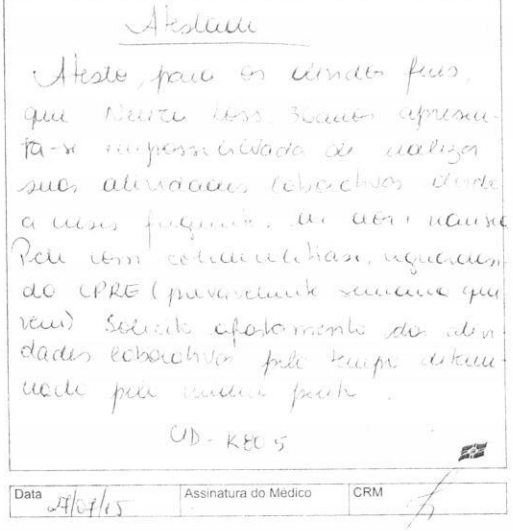 Atestado
Atesto, para os devidos fins,
que apresen-
ta-se impossibilitada de realizar
suas atividades laborativas devido
a crises frequentes de dor e náusea
coledocolitíase,
do CPRE (provavelmente semana que
vem) Solicito afastamento das ativi-
dades laborativas pelo tempo determi-
nado pelo perito.
CID - K80.5
Data
Assinatura do Médico
CRM